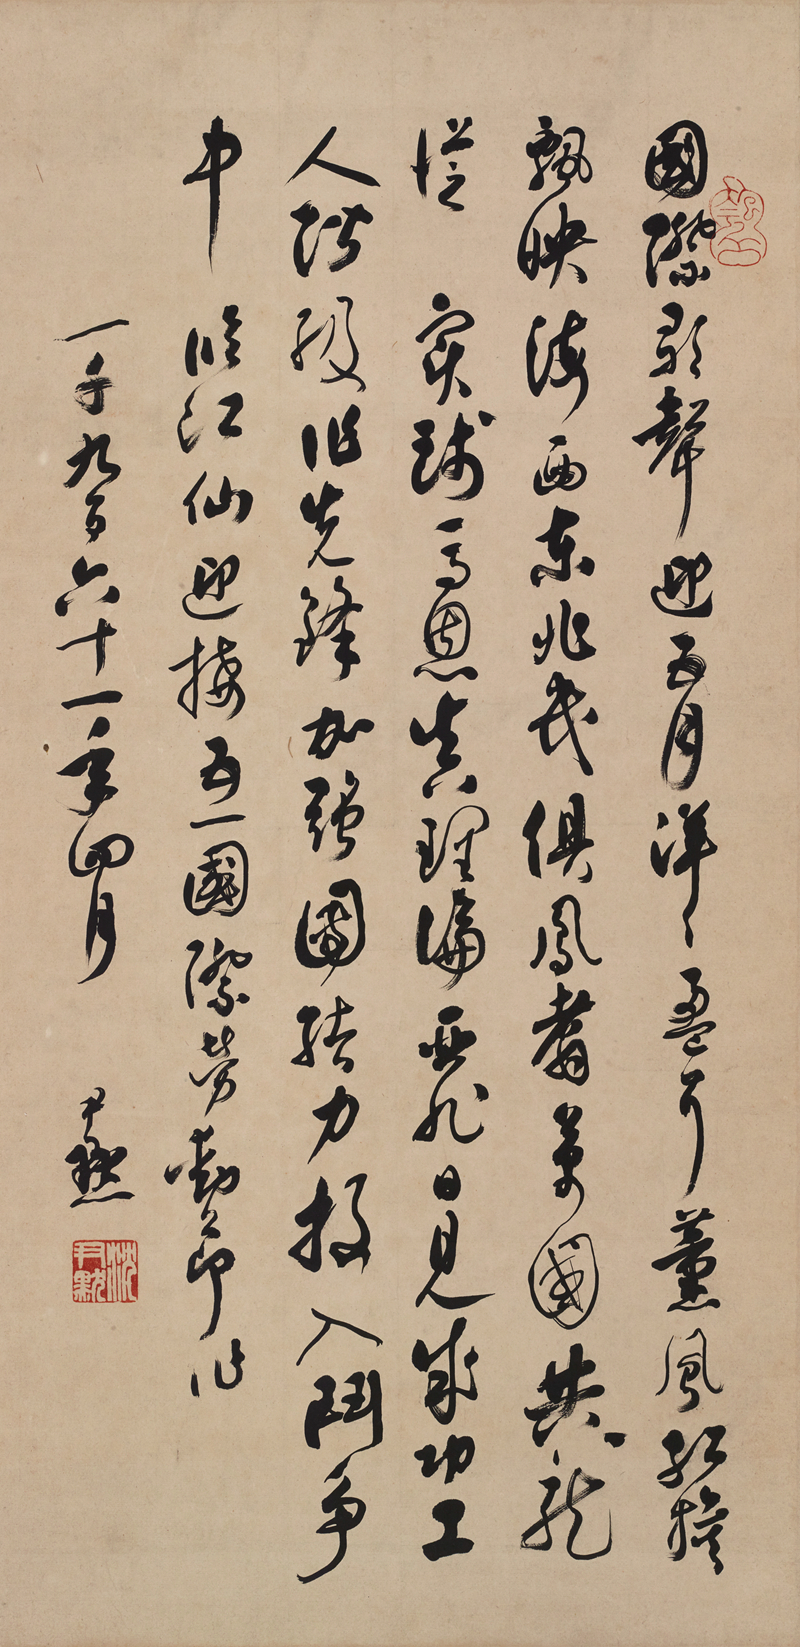 國際歌聲迎五月洋〻盈耳薰風紅旗
飄映海西東兆民俱鳳翥萬國共龍
從 實踐馬恩真理論亞非日見成功工
人階級作先鋒加強團結力投入鬥爭
中 臨江仙迎接五一國際勞動節作
一千九百六十一年四月 尹默
沈尹默